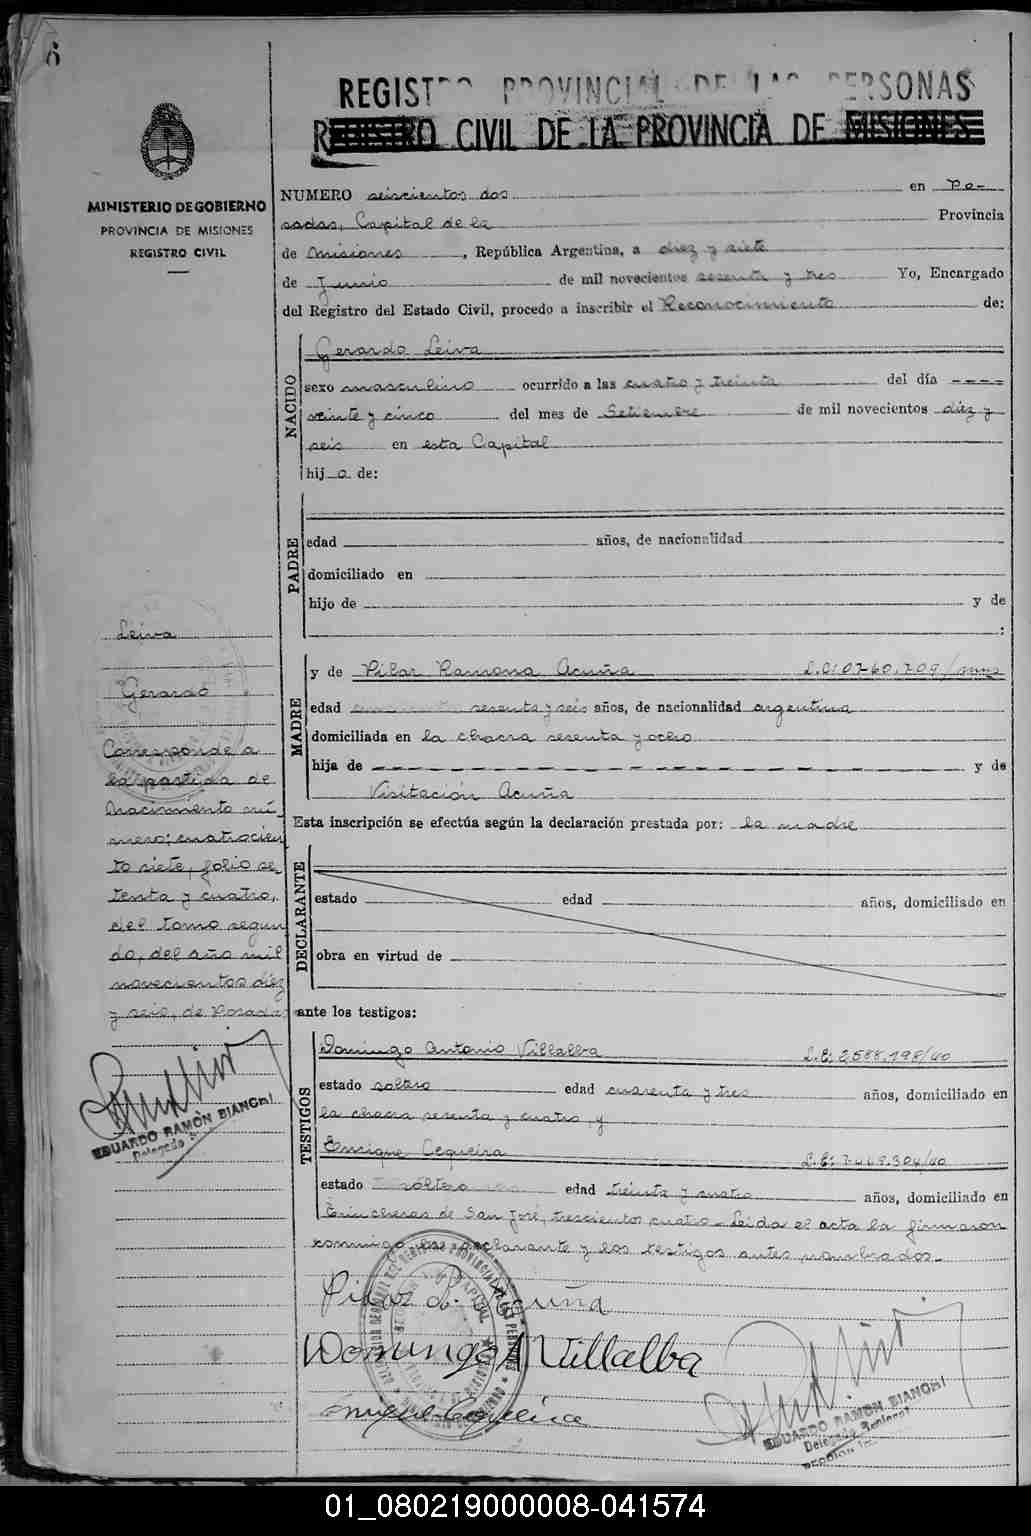 6
REGISTRO PROVINCIAL DE LAS PERSONAS
REGISTRO CIVIL DE LA PROVINCIA DE MISIONES
MINISTERIO DE GOBIERNO
PROVINCIA DE MISIONES
REGISTRO CIVIL
NUMERO seiscientos dos en Po-
sadas, Capital de la Provincia
de Misiones, República Argentina, a diez y siete
de Junio de mil novecientos sesenta y tres Yo, Encargado
del Registro del Estado Civil, procedo a inscribir el Reconocimiento de:
NACIDO
Gerardo Leiva
sexo masculino ocurrido a las cuatro y treinta del día ----
veinte y cinco del mes de Setiembre de mil novecientos diez y
seis en esta Capital
hijo de:
PADRE
edad años, de nacionalidad
domiciliado en
hijo de y de
:
MADRE
y de Pilar Ramona Acuña L.C.
edad sesenta y seis años, de nacionalidad argentina
domiciliada en la chacra sesenta y ocho
hija de y de
Visitación Acuña
Esta inscripción se efectúa según la declaración prestada por: la madre
DECLARANTE
estado edad años, domiciliado en
obra en virtud de
ante los testigos:
TESTIGOS
Domingo Antonio Villalba L.E: 2.588.198/40
estado soltero edad cuarenta y tres años, domiciliado en
la chacra sesenta y cuatro, y
Enrique Cequeira L.E:
estado sóltero edad treinta y cuatro años, domiciliado en
Trincheras de San José, trescientos cuatro - Leida el acta la firmaron
conmigo la declarante y los testigos antes nombrados.-
Leiva
Gerardo
Corresponde a
la partida de
Nacimiento nú-
mero: cuatrocien
to siete, folio se-
tenta y cuatro,
del tomo segun
do, del año mil
novecientos diez
y seis, de Posadas
EDUARDO RAMÓN BIANCHI
Delegado
Pilar R. Acuña
Domingo A Villalba
Enrique Cequeira
EDUARDO RAMÓN BIANCHI
Delegado Regional
01_080219000008-041574